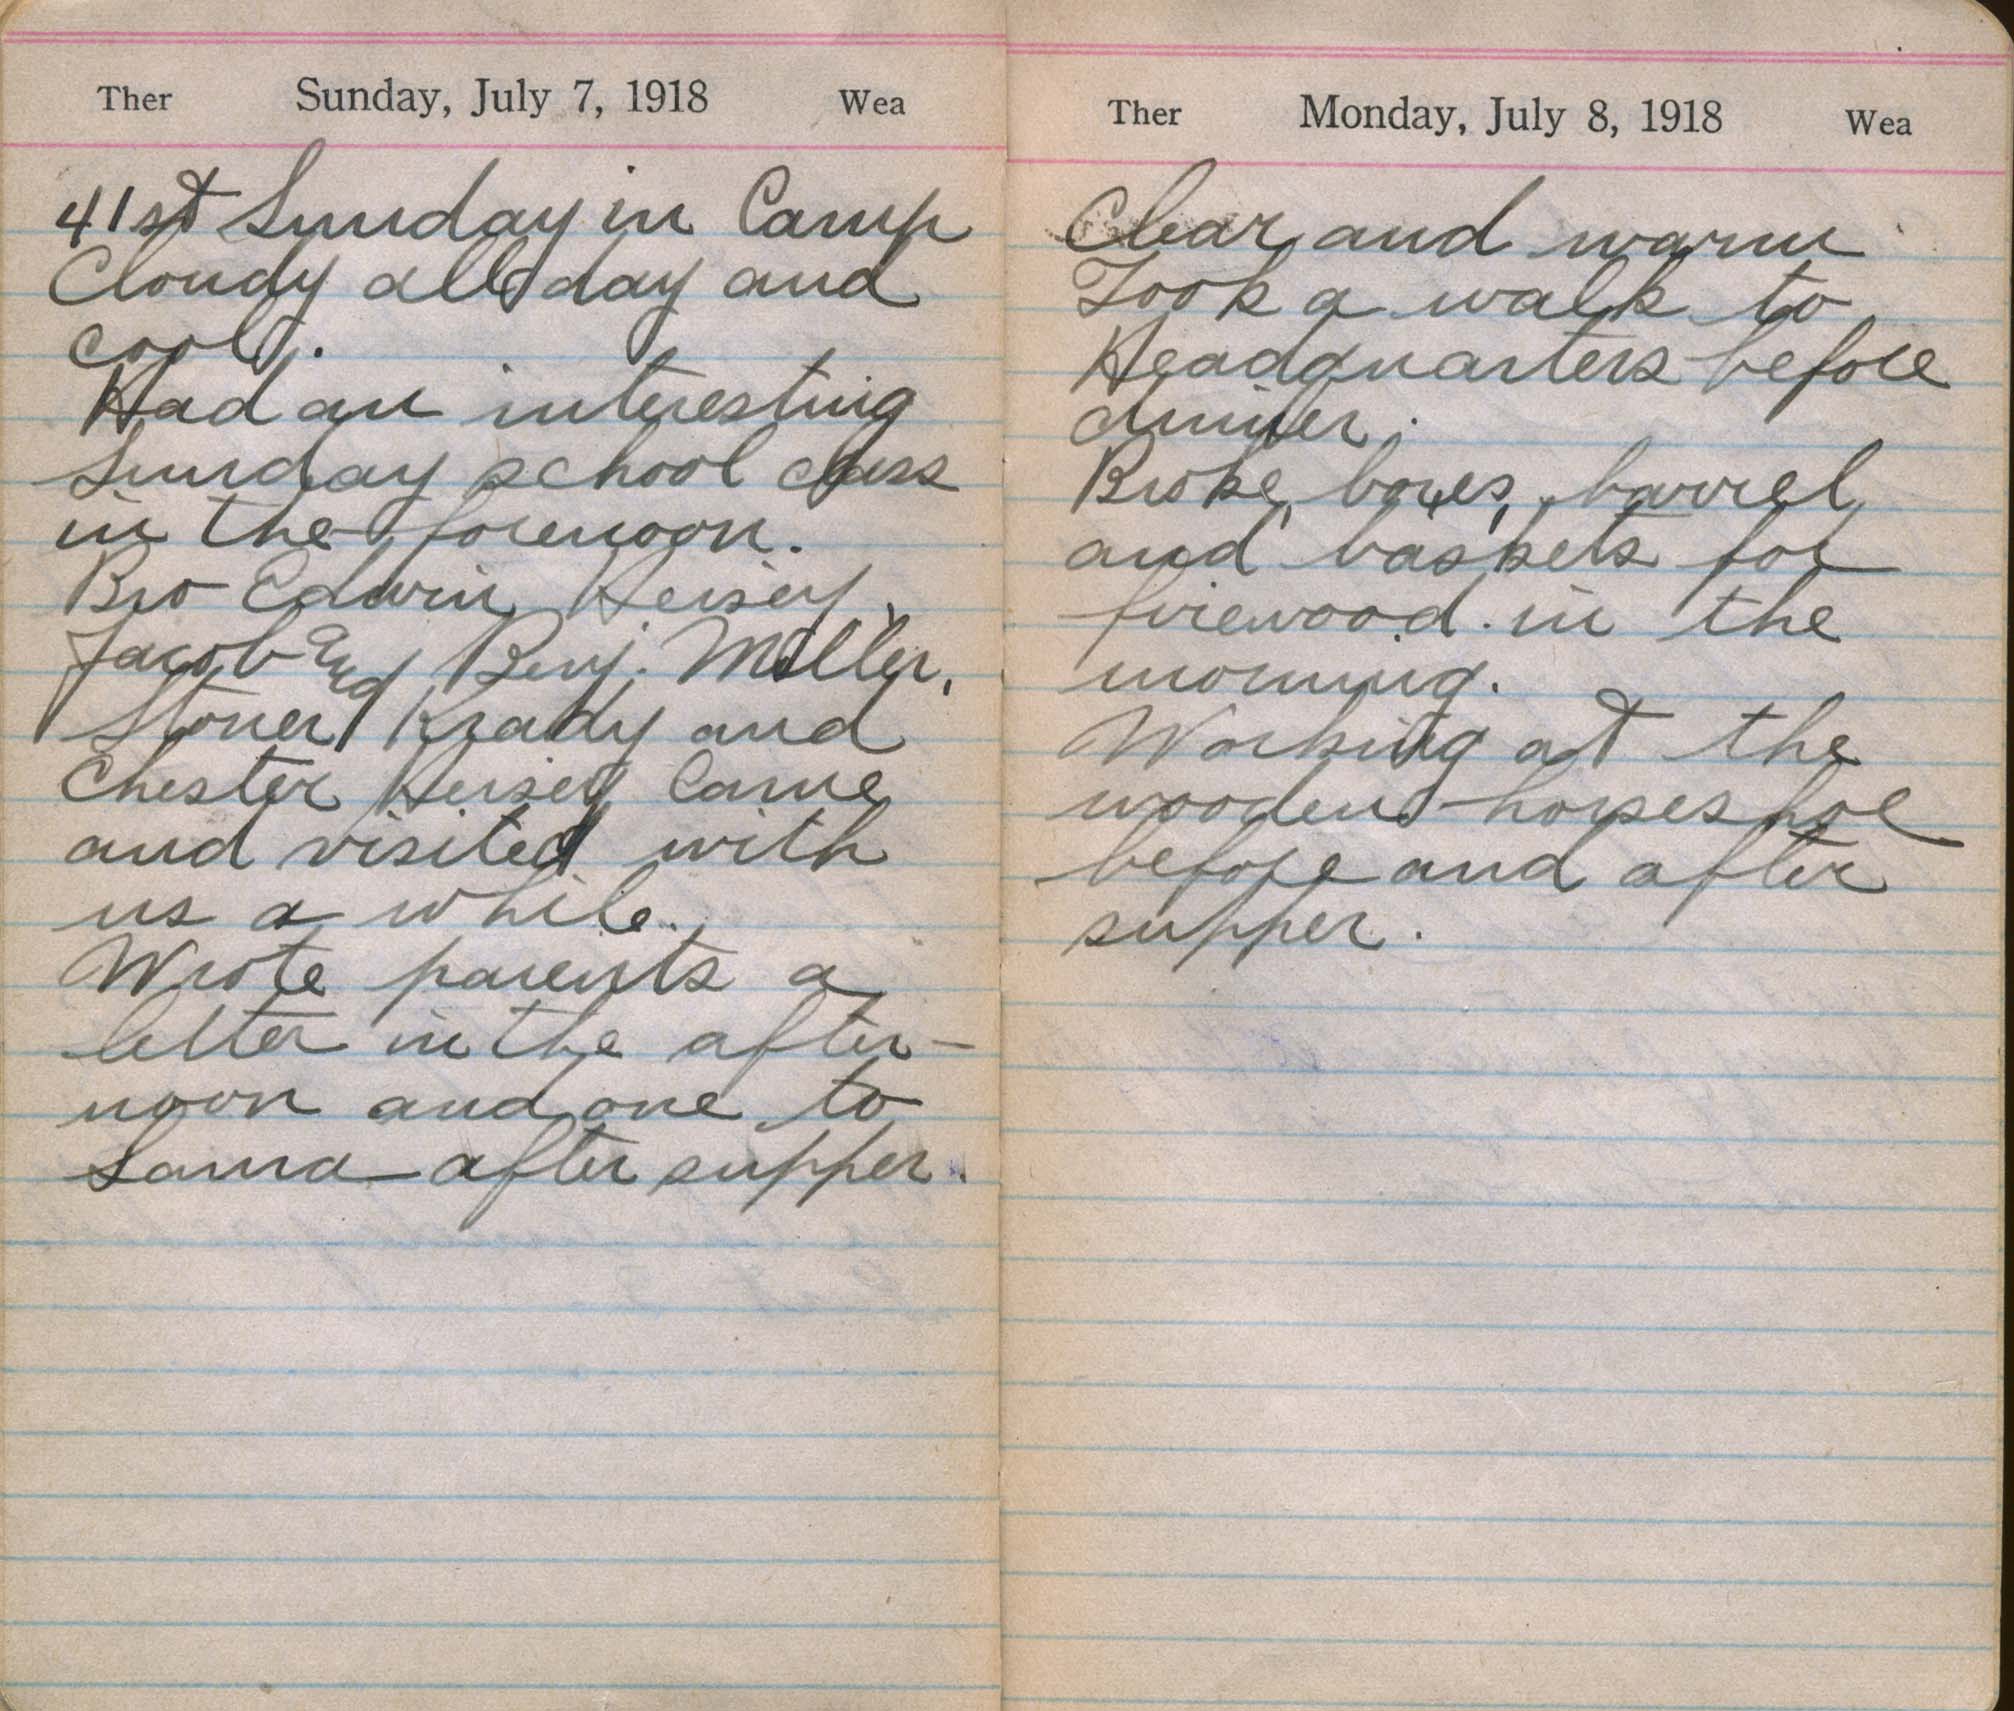 Ther Sunday, July 7, 1918 Wea
41st Sunday in Camp
Cloudy all day and
cool.
Had an interesting
Sunday school class
in the forenoon.
Bro Edwin Hersey,
Jacob and Benj. Miller,
Stoner Krady and
Chester Hersey Came
and visited with
us a while.
Wrote parents a
letter in the after-
noon and one to
Laura after supper.
Ther Monday, July 8, 1918 Wea
Clear and warm
Took a walk to
Headquarters before
dinner.
Broke boxes, barrel
and baskets for
firewood in the
morning.
Working at the
wooden horseshoe
before and after
supper.